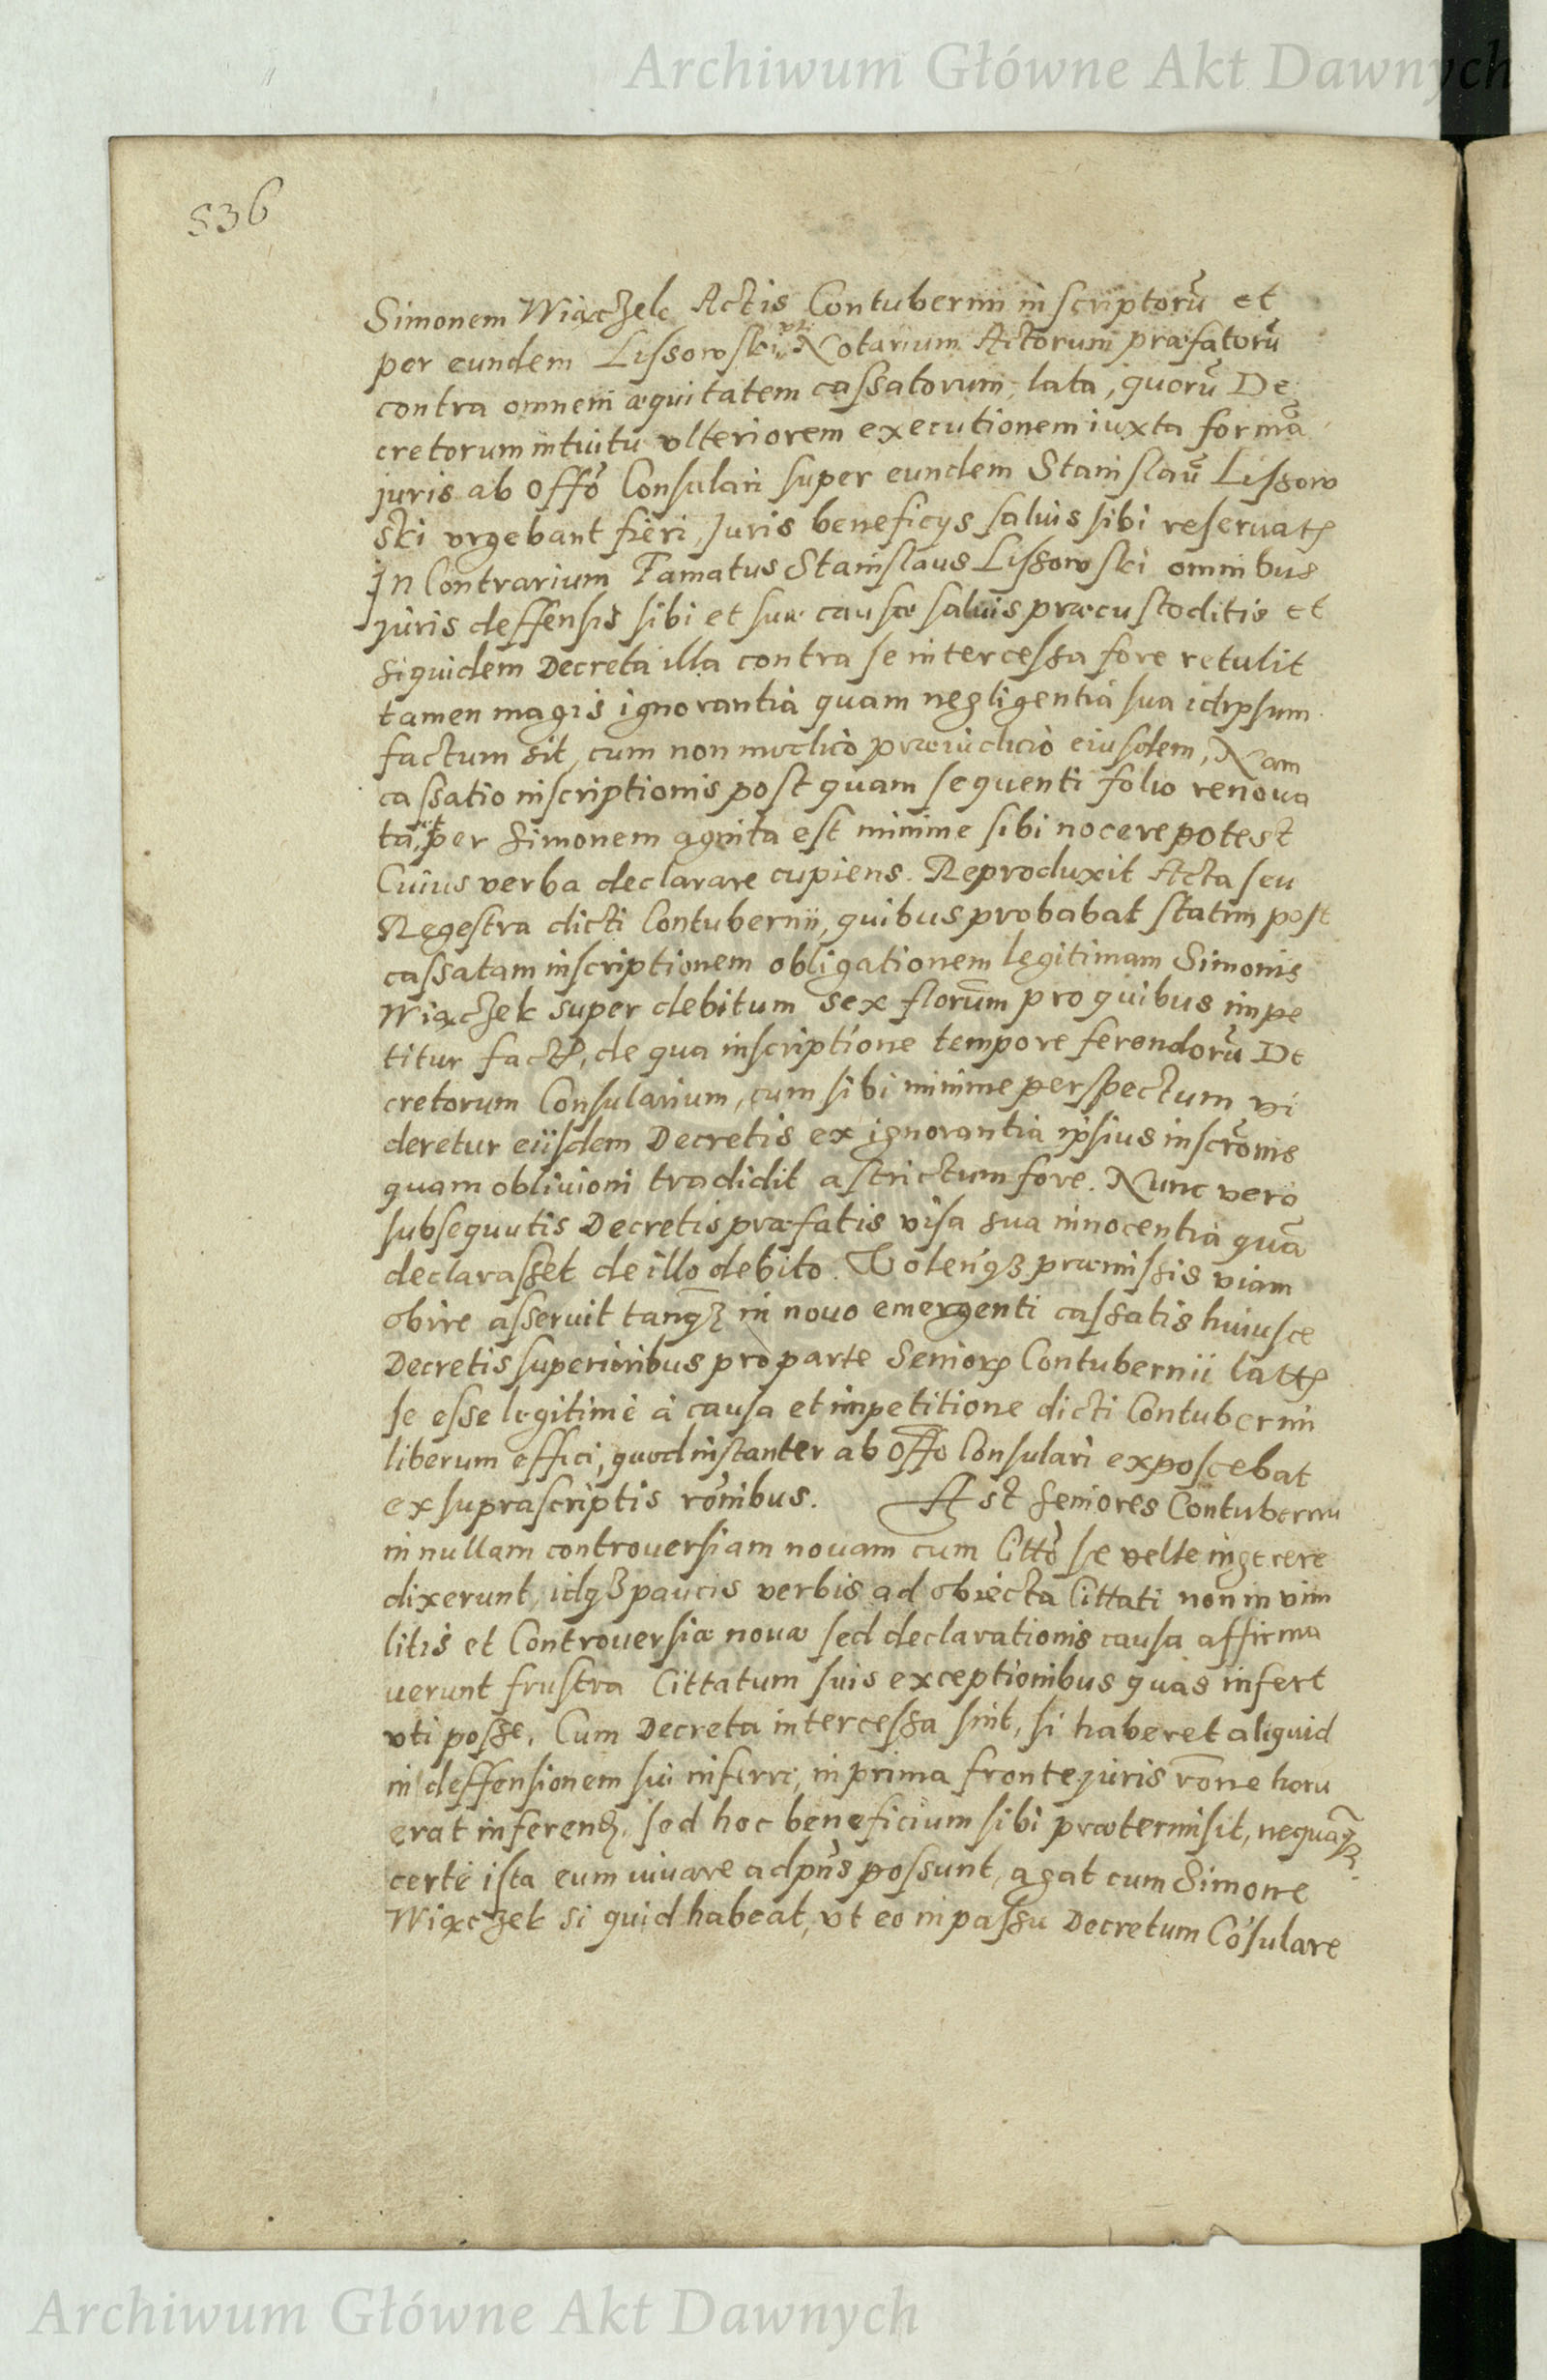 Archiwum Główne Akt Dawnych
536
Simonem Wiączek Actis Contubernii inscriptorũ et
per eundem Lissowski, vti Notarium Actorum præfatorũ
contra omnem æquitatem cassatorum, lata, quorũ De
cretorum intuitu vlteriorem executionem iuxta formã
juris ab Offõ Consulari super eundem Stanislaũ Lissow
ski vrgebant fieri, Juris beneficys saluis sibi reseruatꝭ
In Contrarium Famatus Stanislaus Lissowski omnibus
juris deffensis sibi et suæ causæ saluis præcustoditis et
siquidem Decreta illa contra se intercessa fore retulit
tamen magis ignorantia quam negligentia sua idipsum
factum sit, cum non modico præiudicio eiusdem, Nam
cassatio inscriptionis post quam sequenti folio renoua
ta, et per Simonem agnita est minime sibi nocere potest
Cuius verba declarare cupiens. Reproduxit Acta seu
Regestra dicti Contubernii, quibus probabat statim post
cassatam inscriptionem obligationem legitimam Simonis
Wiączek super debitum sex florum̃ pro quibus impe
titur factꝭ, de qua inscriptione tempore ferendorũ De
cretorum Consularium, cum sibi minime perspectum vi
deretur eiisdem Decretis ex ignorantia ipsius inscrõnis
quam obliuioni tradidit astrictum fore. Nunc vero
subsequutis Decretis præfatis visa sua innocentia quã
declarasset de illo debito. Volenqʒ præmissis viam
obire asseruit tanqʒ in nouo emergenti cassatis huiusce
Decretis superioribus pro parte Seniorꝭ Contubernii lattꝭ
se esse legitime à causa et impetitione dicti Contubernii
liberum effici, quod instanter ab Offo Consulari exposcebat
ex suprascriptis rõnibus. Ast Seniores Contubernii
in nullam controuersiam nouam cum Cittõ se velle ingerere
dixerunt, idqʒ paucis verbis ad obiecta Cittati non in vim
litis et Controuersiæ nouæ sed declarationis causa affirma
uerunt frustra Cittatum suis exceptionibus quas infert
vti posse, Cum Decreta intercessa sint, si haberet aliquid
in deffensionem sui inferre, in prima fronte juris rõne horu
erat inferenꝭ, sed hoc beneficium sibi prætermisit, nequãqʒ
certe ista eum iuuare ad pñs possunt, agat cum Simone
Wiączek si quid habeat, vt eo in passu Decretum Cõsulare
Archiwum Główne Akt Dawnych